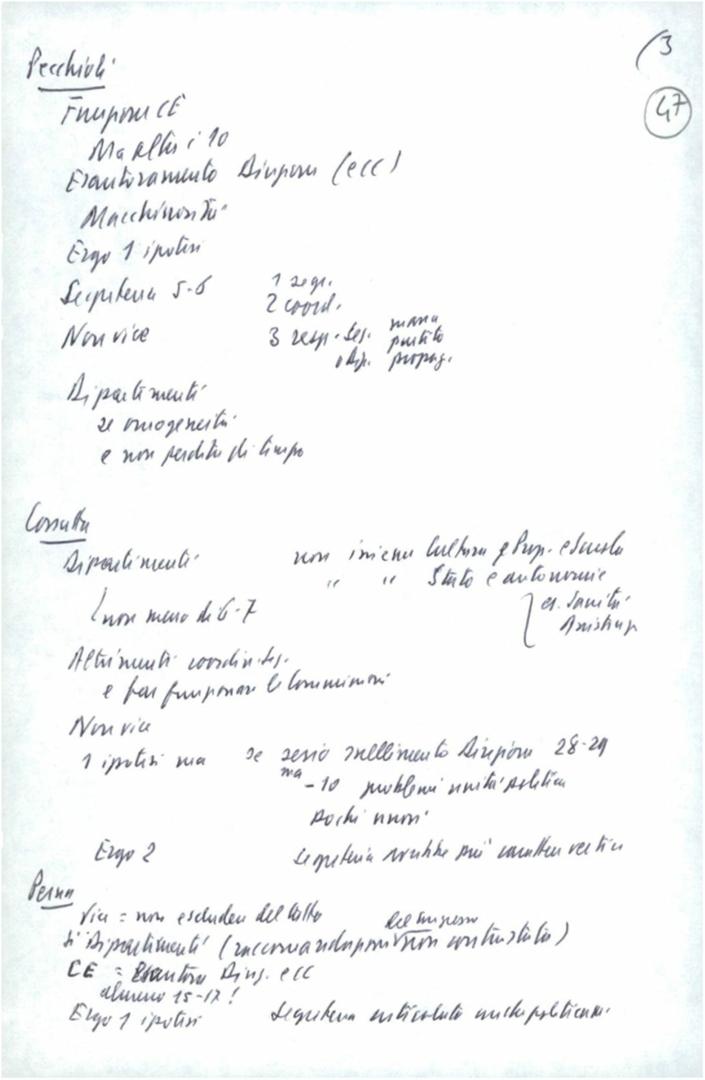 (3
47
Pecchioli
Funzioni CE
Ma altri i 10
Esautoramento Direzione (ecc)
Macchinosità
Ergo 1 ipotesi
Segreteria 5-6 1 segr.
2 coord.
Non vice 3 resp. sez. massa
partito
propag.
Dipartimenti
se omogeneità
e non perdita di tempo
Cossutta
Dipartimenti non insieme Cultura e Prop. e Scuola
" " Stato e autonomie
non meno di 6-7 es. Sanità
Altrimenti coordin. sez.
e far funzionare le Commissioni
Non vice
1 ipotesi ma se serio snellimento Direzione 28-29
ma -10 problemi unità politica
pochi nuovi
Ergo 2 Segreteria avrebbe più carattere vertice
Perna
Vice = non escludere del tutto
Sì Dipartimenti (raccomandazioni non contrastata)
CE = Esautora Direz. ecc
almeno 15-17!
Ergo 1 ipotesi Segreteria articolata anche